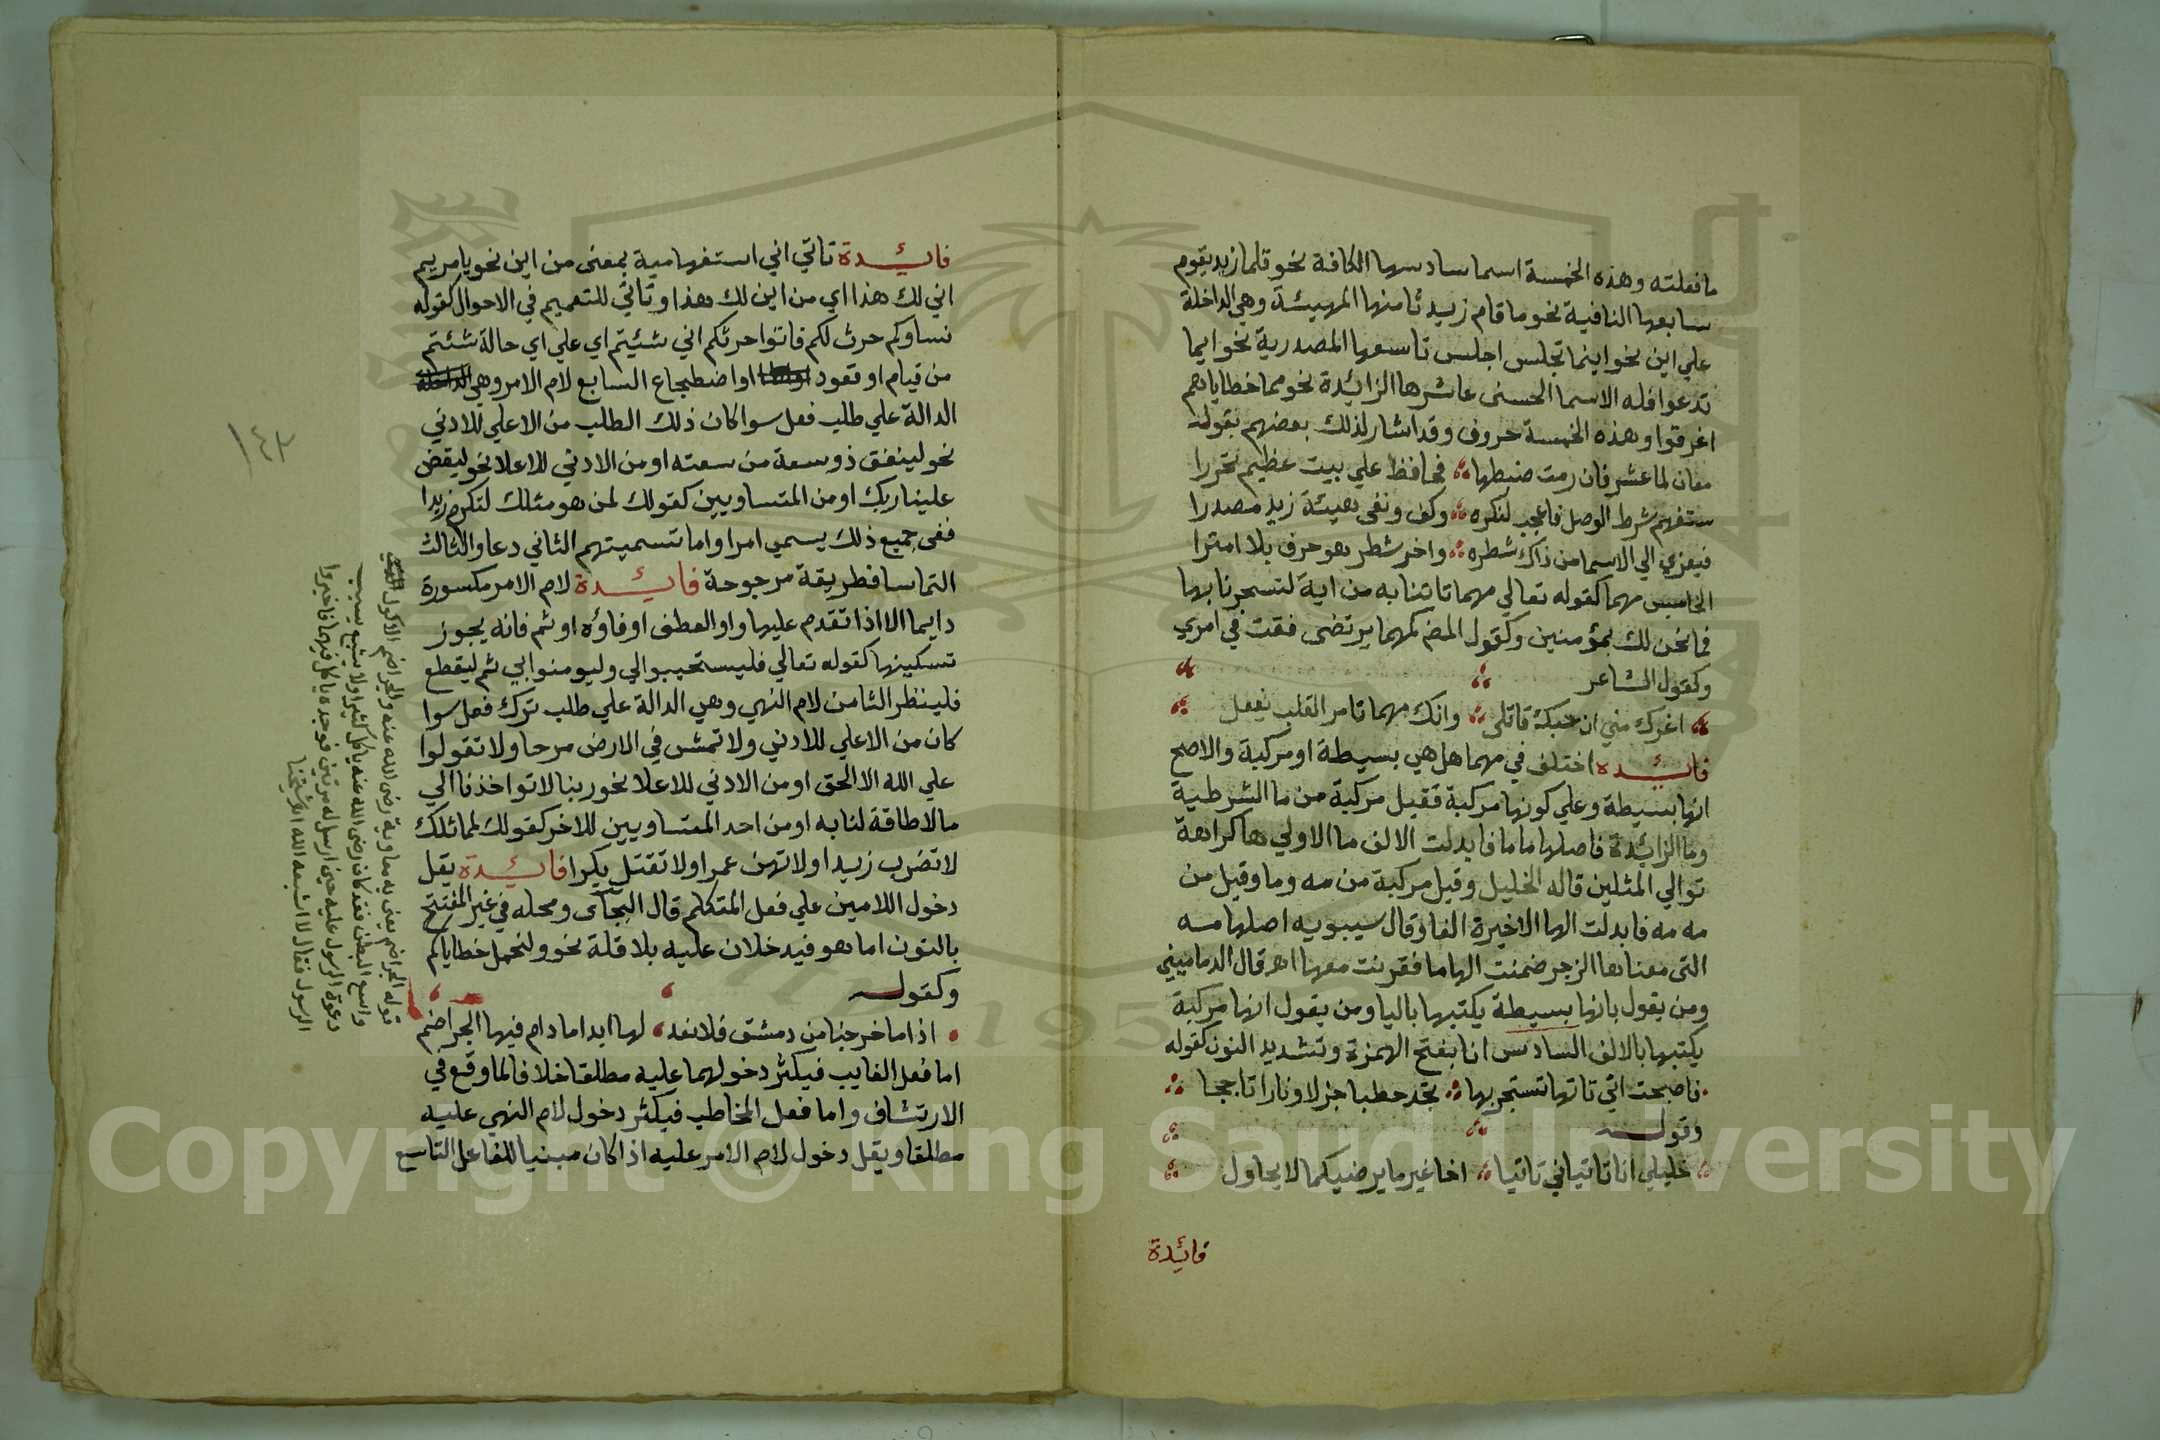 ما فعلته وهذه الخمسة اسما سادسها الكافة نحو قلما زيد يقوم
سابعها النافية نحو ما قام زيد ثامنها المهيئة وهي الداخلة
علي اين نحو اينما تجلس اجلس تاسعها المصدرية نحو ايما
تدعوا فله الاسما الحسنى عاشرها الزائدة نحو مما خطاياهم
اغرقوا وهذه الخمسة حروف وقد اشار لذلك بعضهم بقوله
معان لما عشر فان رمت ضبطها فحافظ علي بيت عظيم تحررا
ستفهم شرط الوصل فاعجب لنكره وكف ونفى هيئة زيد مصدرا
فيعزي الي الاسما من ذاك شطره واخر شطر هو حرف بلا امترا
الخامس مهما كقوله تعالي مهما تاتنا به من اية لتسحرنا بها
فما نحن لك بمؤمنين وكقول المض كمهما يرتضى فقت في امري
وكقول الشاعر
اغرك مني ان حبك قاتلي وانك مهما تامر القلب يفعل
فائدة اختلف في مهما هل هي بسيطة او مركبة والاصح
انها بسيطة وعلي كونها مركبة فقيل مركبة من ما الشرطية
وما الزائدة فاصلها ماما فابدلت الالف ما الاولي ها كراهة
توالي المثلين قاله الخليل وقيل مركبة من مه وما وقيل من
مه مه فابدلت الها الاخيرة الفا وقال سيبويه اصلها مه
التى معناها الزجر ضمنت الها ما فقرنت معها اهـ قال الدماميني
ومن يقول بانها بسيطة يكتبها باليا ومن يقول انها مركبة
يكتبها بالالف السادس انا بفتح الهمزة وتشديد النون كقوله
فاصبحت اتي تاتها تستجر بها تجد حطبا جزلا ونارا تاججا
وقوله
خليلي انا تاتياني تاتيا اخا غير ما يرضيكما لا يحاول
فائدة
فائدة تاتي اني استفهامية بمعنى من اين نحو يا مريم
اني لك هذا اي من اين لك هذا وتاتي للتعميم في الاحوال كقوله
نساوكم حرث لكم فاتوا حرثكم اني شئيتم اي علي اي حالة شئتم
من قيام او قعود او اضطجاع السابع لام الامر وهي الداخلة
الدالة علي طلب فعل سوا كان ذلك الطلب من الاعلي للادني
نحو لينفق ذو سعة من سعته او من الادني للاعلا نحو ليقض
علينا ربك او من المتساويين كقولك لمن هو مثلك لتكرم زيدا
ففى جميع ذلك يسمي امرا واما تسميتهم الثاني دعا والثالث
التماسا فطريقة مرجوحة فائدة لام الامر مكسورة
دايما الا اذا تقدم عليها واو العطف او فاؤه او ثم فانه يجوز
تسكينها كقوله تعالي فليستجيبوا لي وليومنوا بي ثم ليقطع
فلينظر الثامن لام النهي وهي الدالة علي طلب ترك فعل سوا
كان من الاعلي للادني ولا تمش في الارض مرحا ولا تقولوا
علي الله الا الحق او من الادني للاعلا نحو ربنا لا تواخذنا الي
ما لا طاقة لنا به او من احد المتساويين للاخر كقولك لمماثلك
لا تضرب زيدا ولا تهن عمرا ولا تقتل بكرا فائدة يقل
دخول اللامين علي فعل المتكلم قال البجآى ومحله في غير المفتتح
بالنون اما هو فيدخلان عليه بلا قلة نحو ولنحمل خطاياكم
وكقوله
اذا ما خرجنا من دمشق فلا نعد لها ابدا ما دام فيها الجراضم
اما فعل الغايب فيكثر دخولهما عليه مطلقا خلافا لما وقع في
الارتشاف واما فعل المخاطب فيكثر دخول لام النهي عليه
مطلقا ويقل دخول لام الامر عليه اذا كان مبنيا للفاعل التاسع
قوله الجراضم يعنى به معاوية رضى الله عنه والجراضم الاكول
واسع البطن فقد كان رضى الله عنه ياكل كثيرا ولا يشبع بسبب
دعوة الرسول عليه حين ارسل له مرتين فوجده ياكل فيهما فاخبروا
الرسول فقال لا اشبعه الله اهـ شيخنا
١٤٢
Copyright © King Saud University
1957